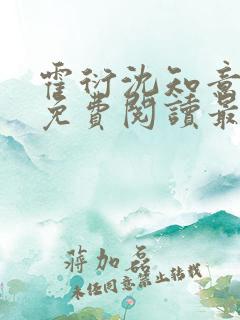 霍衍沈知意
免費閱讀最
蔣加磊
未经同意禁止转载